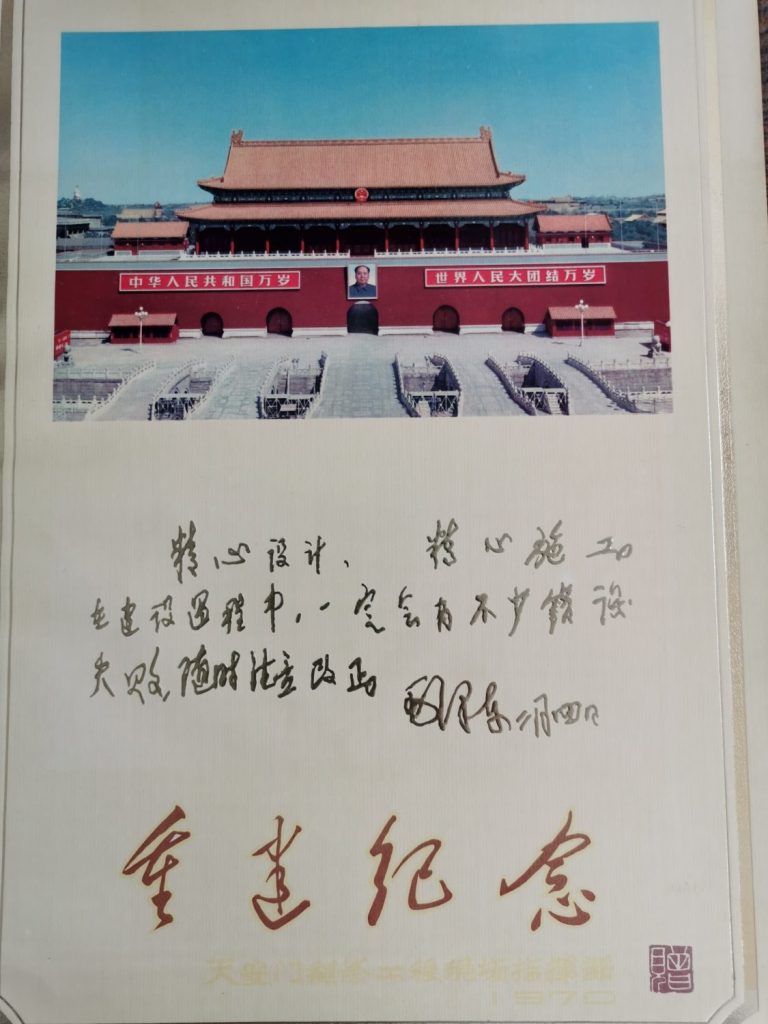 中华人民共和国万岁
世界人民大团结万岁
精心设计、 精心施工
在建设过程中,一定会有不少错误
失败,随时注意改正
毛泽东 二月四日
重建纪念
天安门
1970
赠